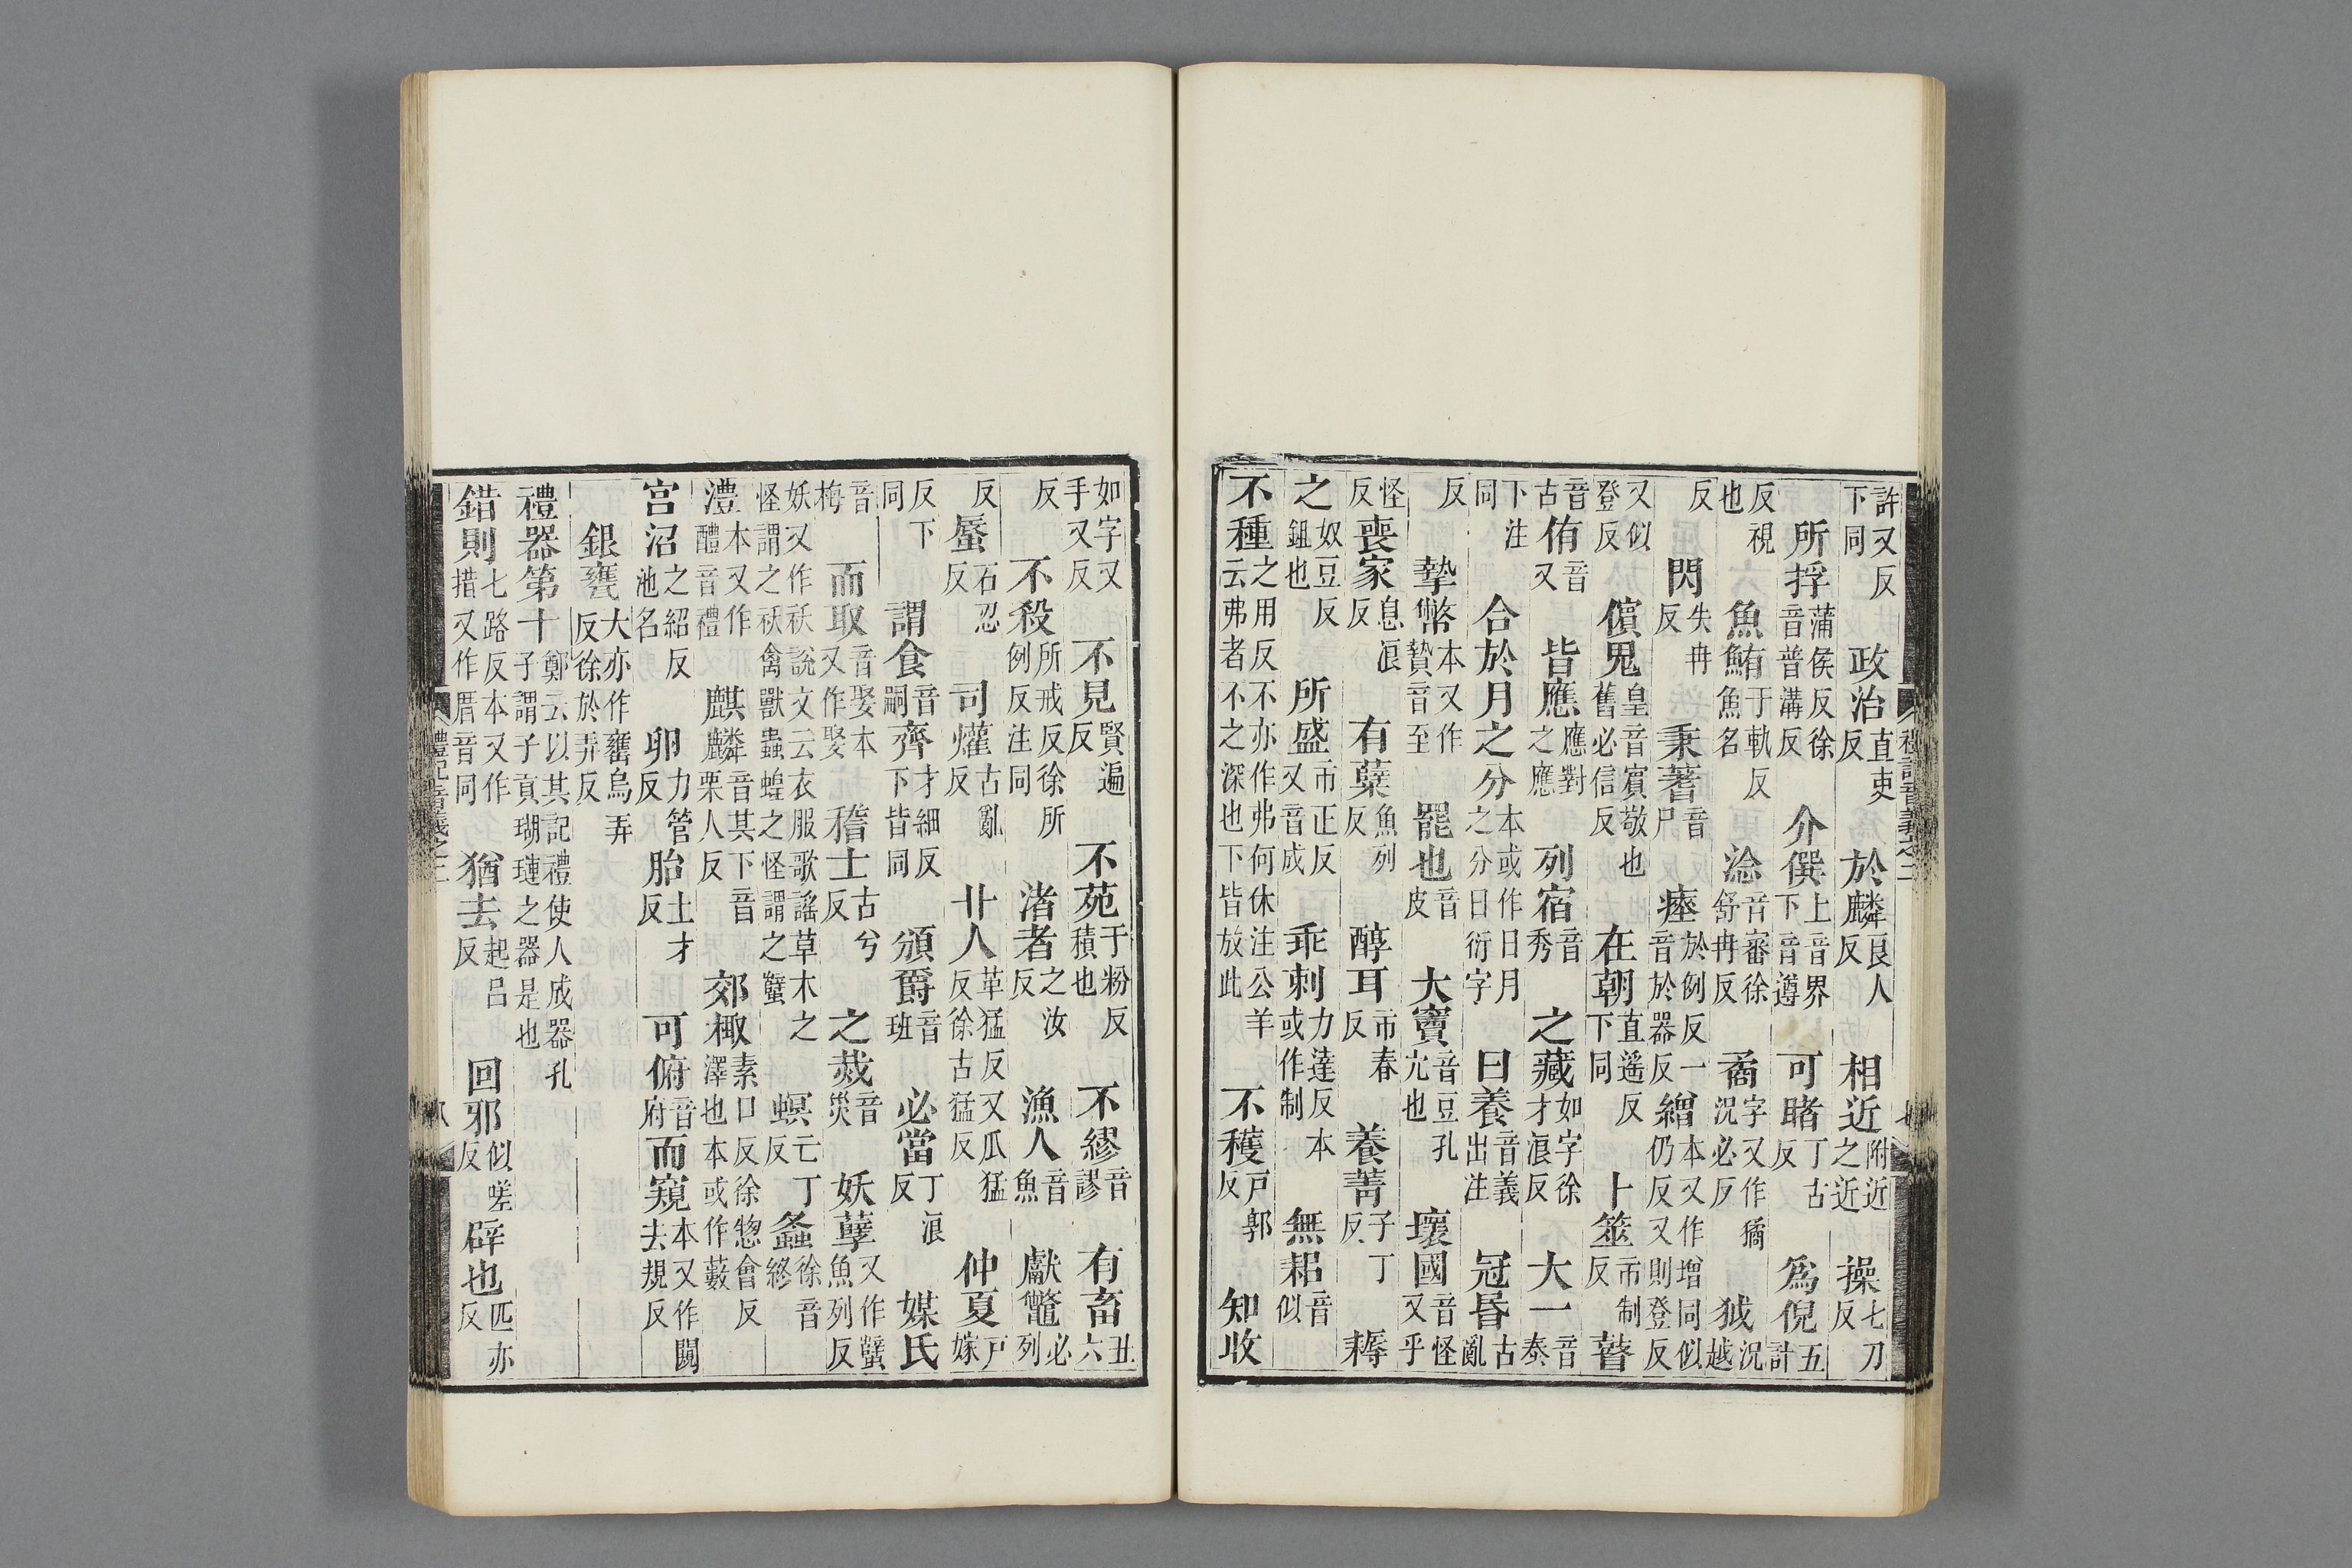 許又反下同 政治直吏反 於麟良人反 相近附近之近 操七刀反
所捊蒲侯反徐音普溝反 介僎上音界下音遵 可睹丁古反 爲倪五計
反視也 魚鮪于軌反魚名 淰音審徐舒冉反 矞字又作獝況必反 狘況越
反 閃失冉反 秉蓍音尸 瘞於例反一音於器反 繒本又作增同似仍反又則登反
又似登反 儐鬼皇音賓敬也舊必信反 在朝直遙反下同 卜筮市制反 瞽
音古 侑音又 皆應應對之應 列宿音秀 之藏如字徐才浪反 大一音泰
下注同 合於月之分本或作日月之分日衍字 曰養音義出注 冠昏古亂
反 摯幣本又作贄音至 罷也音皮 大竇音豆孔穴也 壞國音怪又乎
怪反 喪家息浪反 有糵魚列反 醇耳市春反 養菁子丁反 耨
之奴豆反鉏也 所盛市正反又音成 乖剌力達反本或作制 無耜音似
不種之用反不亦作弗何休注公羊云弗者不之深也下皆放此 不穫戸郭反 知收
如字又手又反 不見賢遍反 不苑于粉反積也 不繆音謬 有畜丑六
反 不殺所戒反徐所例反注同 渚者之汝反 漁人音魚 獻鼈必列
反 蜃石忍反 司爟古亂反 卝人革猛反又瓜猛反徐古猛反 仲夏戸嫁
反下同 謂食音嗣 齊才細反下皆同 頒爵音班 必當丁浪反 媒氏
音梅 而取音娶本又作娶 稽士古兮反 之烖音災 妖孽又作蠥魚列反
妖又作祅說文云衣服歌謠草木之怪謂之祅禽獸蟲蝗之怪謂之蠥 螟亡丁反 螽徐音終
澧本又作醴音禮 麒麟音其下音栗人反 郊棷素口反徐揔會反澤也本或作藪
宫沼之紹反池名 卵力管反 胎土才反 可俯音府 而窺本又作闚去規反
銀甕大亦作罋烏弄反徐於弄反
禮器第十鄭云以其記禮使人成器孔子謂子貢瑚璉之器是也
錯則七路反本又作措又作厝音同 猶去起呂反 回邪似嗟反 辟也匹亦反
禮記音義之二